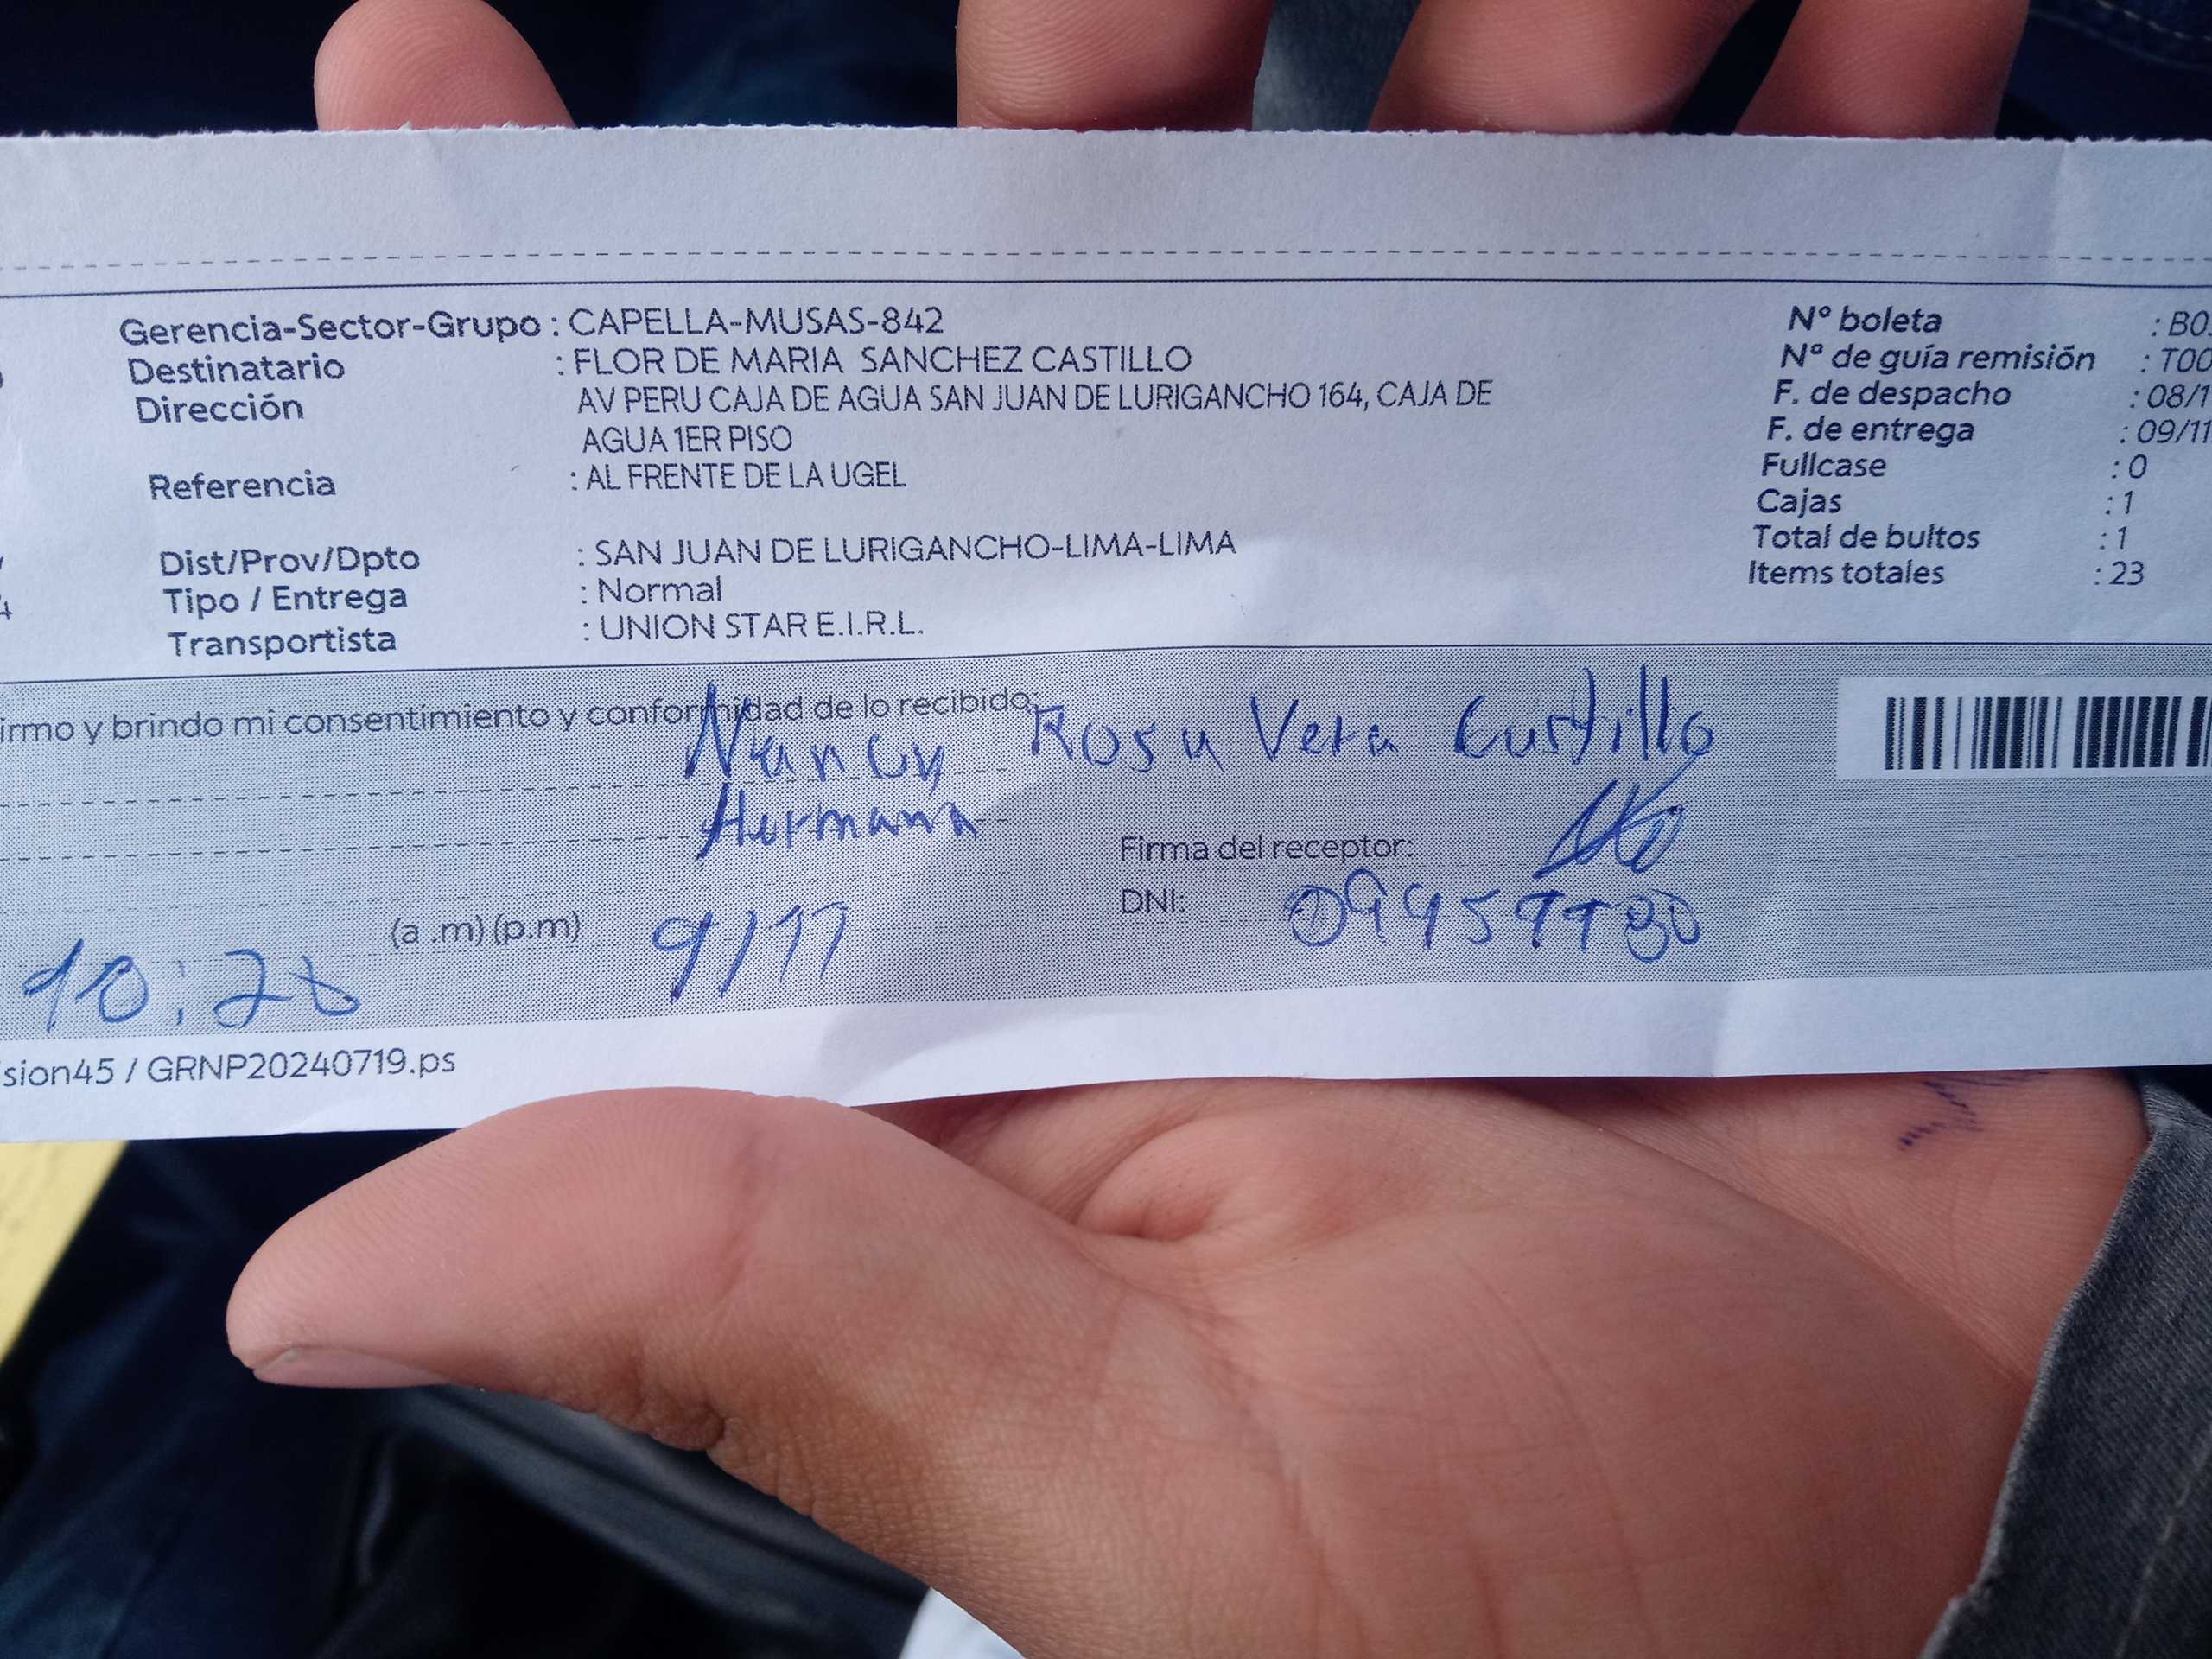 Gerencia-Sector-Grupo : CAPELLA-MUSAS-842
Destinatario : FLOR DE MARIA SANCHEZ CASTILLO
Dirección AV PERU CAJA DE AGUA SAN JUAN DE LURIGANCHO 164, CAJA DE
AGUA 1ER PISO
Referencia : AL FRENTE DE LA UGEL
Dist/Prov/Dpto : SAN JUAN DE LURIGANCHO-LIMA-LIMA
Tipo / Entrega : Normal
Transportista : UNION STAR E.I.R.L.
Nº boleta : B0
Nº de guía remisión : T00
F. de despacho : 08/1
F. de entrega : 09/11
Fullcase : 0
Cajas : 1
Total de bultos : 1
Items totales : 23
irmo y brindo mi consentimiento y conformidad de lo recibido:
Nancy Rosa Vera Castillo
Hermana
Firma del receptor:
DNI:
(a .m) (p.m) 9/11
10:28
sion45 / GRNP20240719.ps